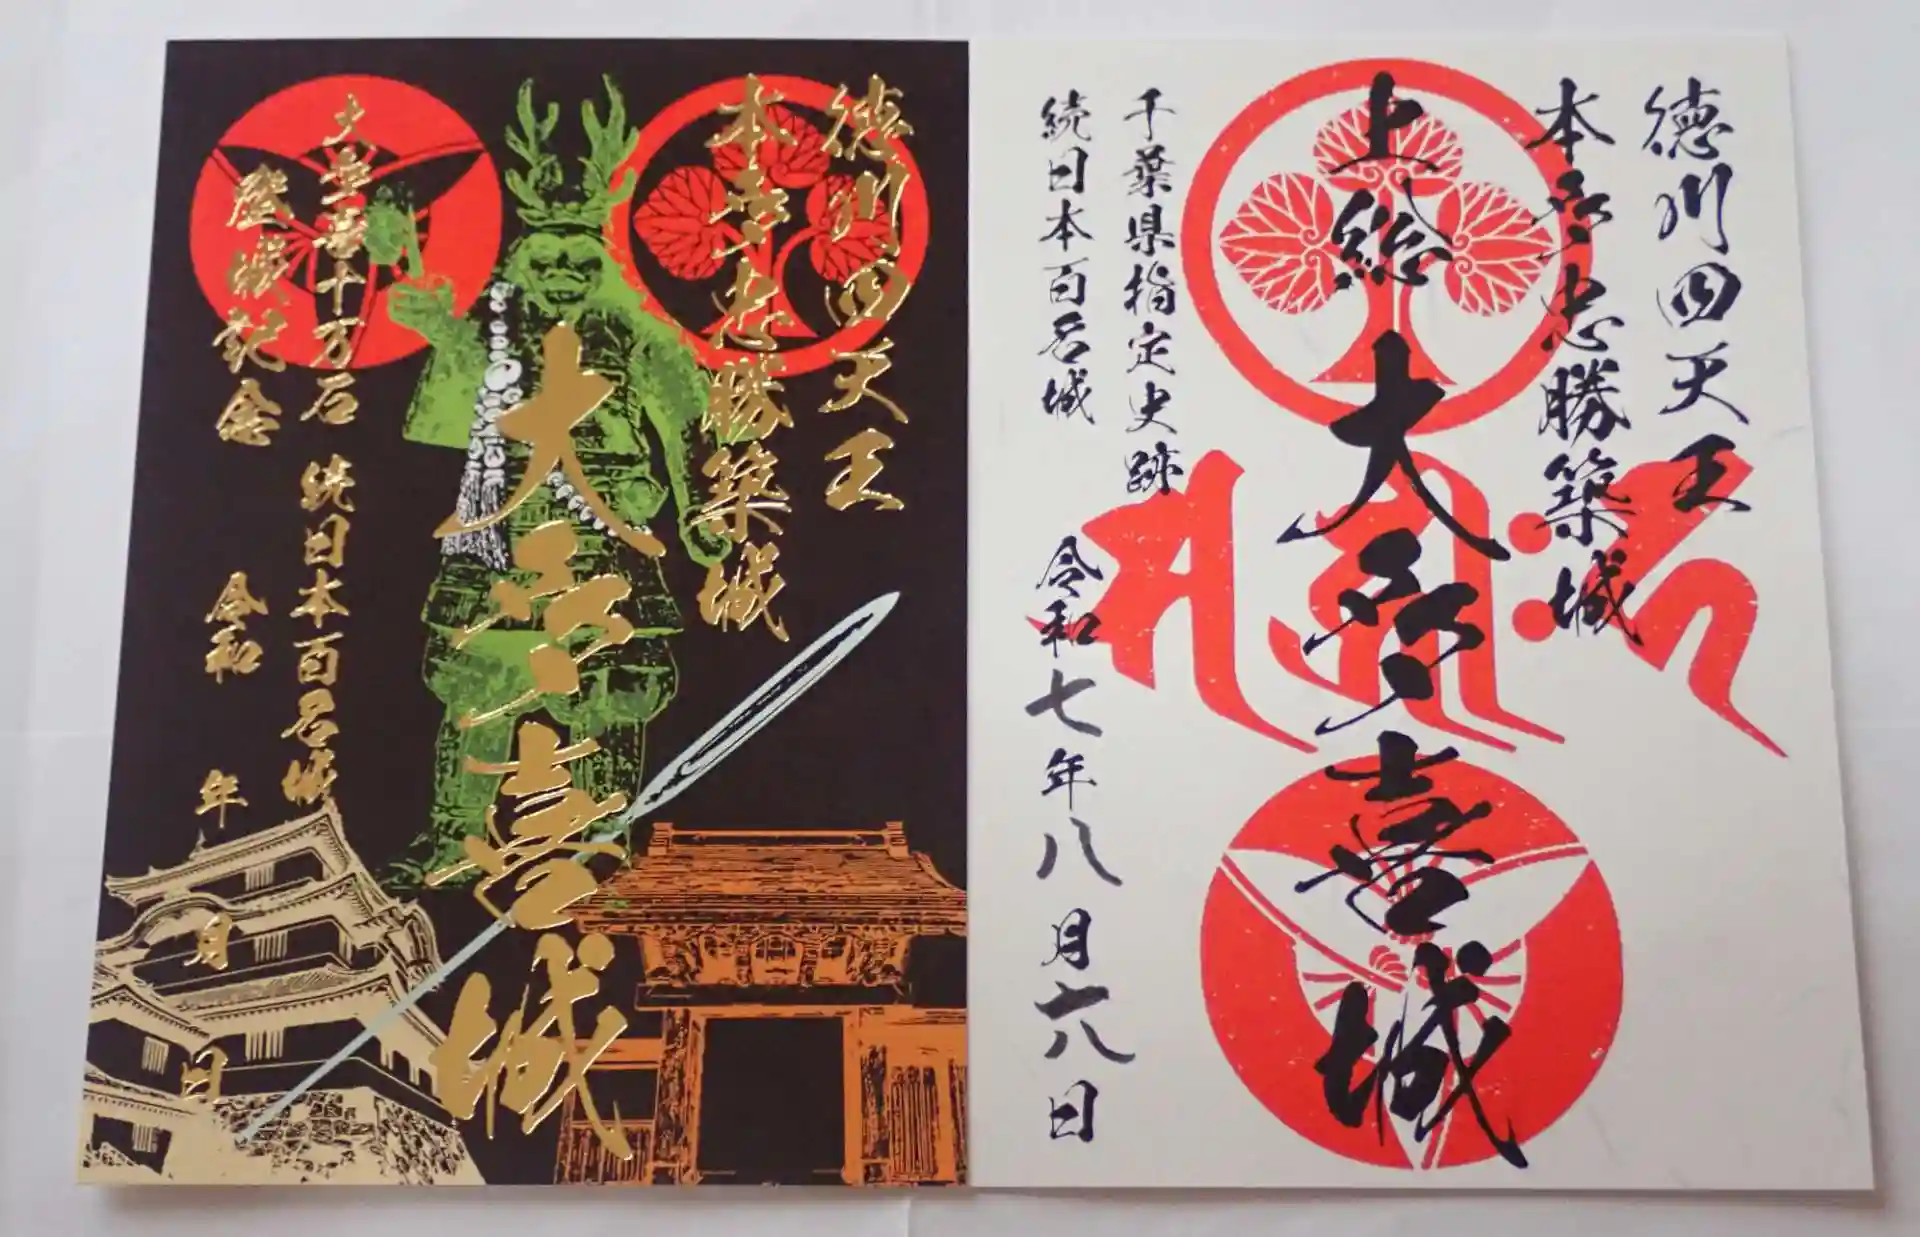 徳川四天王
本多忠勝築城
大多喜城
大多喜十万石
登城記念
続日本百名城
令和 年 月 日
徳川四天王
本多忠勝築城
上総 大多喜城
千葉県指定史跡
続日本百名城
令和七年八月六日